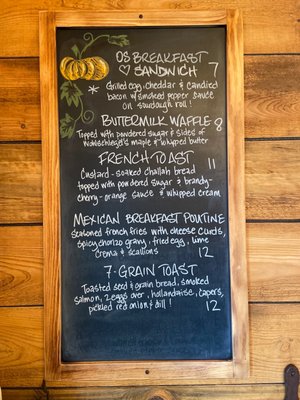 OS BREAKFAST
SANDWICH 7
* Grilled egg, cheddar & candied
bacon w/ smoked pepper sauce
on sourdough roll!
BUTTERMILK WAFFLE 8
Topped with powdered sugar & sides of
maple & whipped butter
FRENCH TOAST 11
Custard-soaked challah bread
topped with powdered sugar & brandy-
cherry-orange sauce & whipped cream
MEXICAN BREAKFAST POUTINE
Seasoned french fries with cheese curds,
spicy chorizo gravy, fried eggs, lime
crema & scallions 12
7-GRAIN TOAST
Toasted seed & grain bread, smoked
salmon, 2 eggs over, hollandaise, capers,
pickled red onion & dill! 12